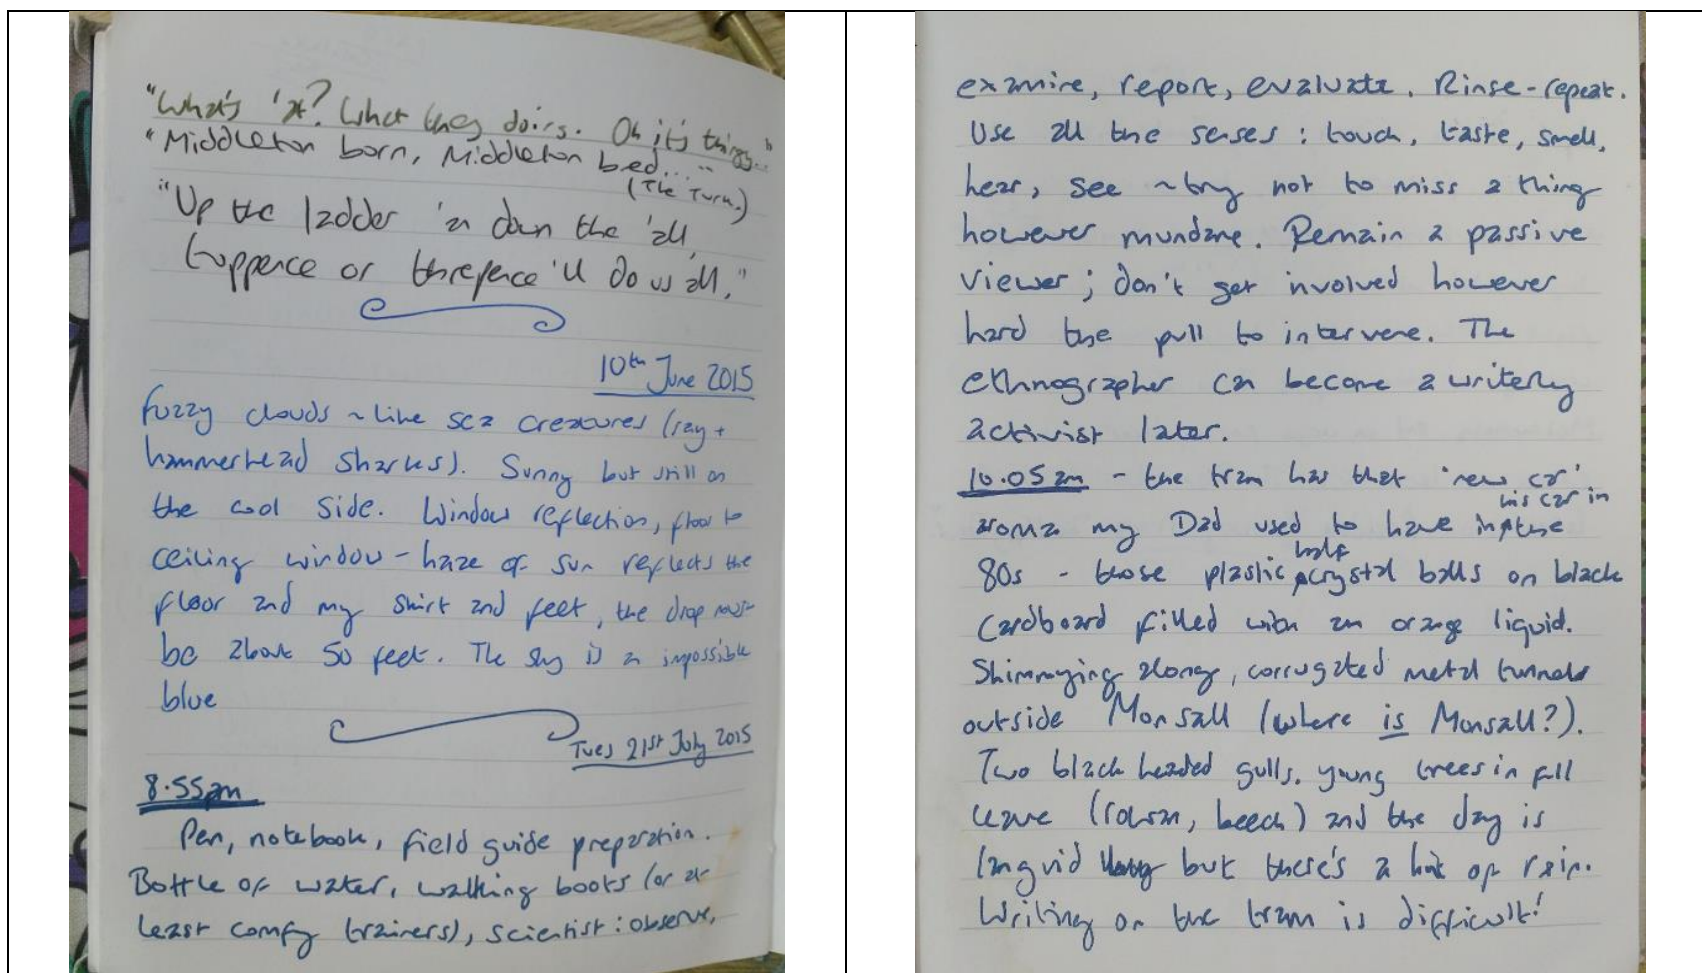 "What's 'at? What they doing. Oh it's thingy..."
"Middleton born, Middleton bed...."
(The Turn.)
"Up the ladder 'an down the 'all,
tuppence or threpence 'll do us all."
10th June 2015
fuzzy clouds ~ like sea creatures (ray +
hammerhead sharks). Sunny but still on
the cool side. Window reflection, floor to
ceiling window - haze of sun reflects the
floor and my skirt and feet, the drop must
be about 50 feet. The sky is an impossible
blue
Tues 21st July 2015
8.55am
Pen, notebook, field guide preparation.
Bottle of water, walking boots (or at
least comfy trainers), scientist: observe,
examine, report, evaluate. Rinse-repeat.
Use all the senses: touch, taste, smell,
hear, see ~ try not to miss a thing
however mundane. Remain a passive
viewer; don't get involved however
hard the pull to intervene. The
ethnographer can become a writerly
activist later.
10.05am - the tram has that 'new car'
his car in
aroma my Dad used to have in the
half
80s - those plastic crystal balls on black
cardboard filled with an orange liquid.
Shimmying along, corrugated metal tunnels
outside Monsall (where is Monsall?).
Two black headed gulls, young trees in full
leave (rowan, beech) and the day is
languid but there's a hint of rain.
Writing on the tram is difficult!